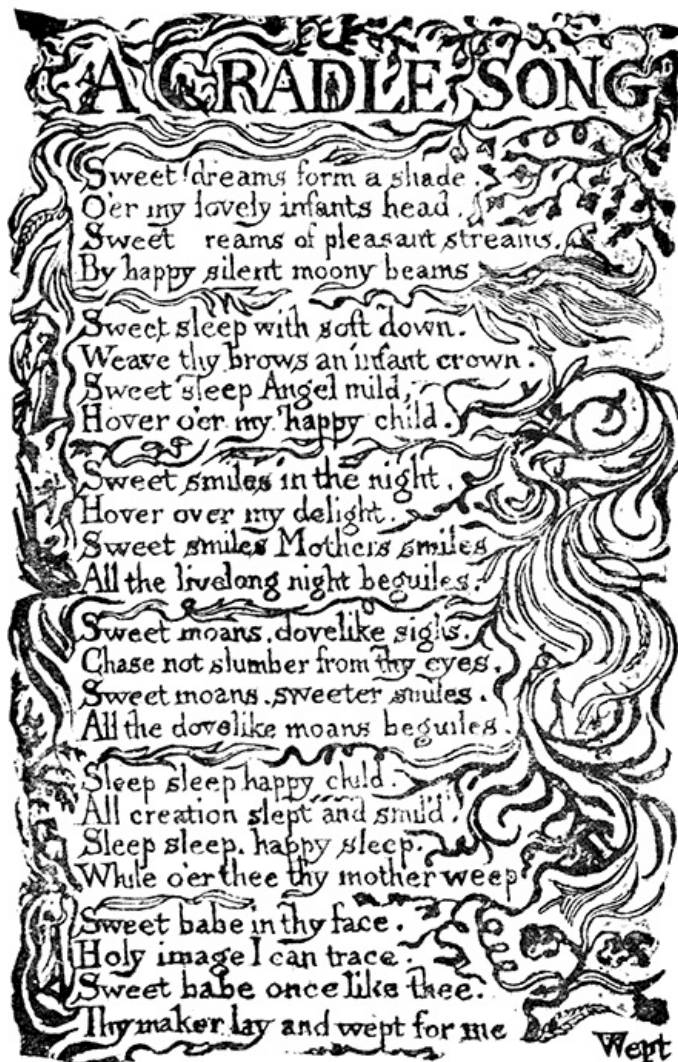 A CRADLE SONG
Sweet dreams form a shade.
O'er my lovely infants head.
Sweet reams of pleasant streams.
By happy silent moony beams
Sweet sleep with soft down.
Weave thy brows an infant crown.
Sweet sleep Angel mild,
Hover o'er my happy child.
Sweet smiles in the night.
Hover over my delight.
Sweet smiles Mothers smiles
All the livelong night beguiles.
Sweet moans, dovelike sighs.
Chase not slumber from thy eyes.
Sweet moans. sweeter smiles.
All the dovelike moans beguiles.
Sleep sleep happy child.
All creation slept and smil'd.
Sleep sleep. happy sleep.
While o'er thee thy mother weep
Sweet babe in thy face.
Holy image I can trace.
Sweet babe once like thee.
Thy maker lay and wept for me
Wept